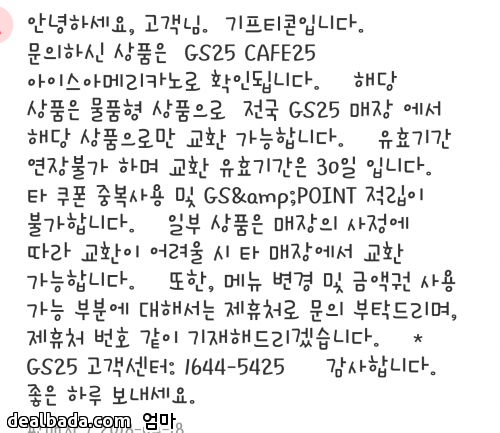 안녕하세요, 고객님. 기프티콘입니다.
문의하신 상품은 GS25 CAFE25
아이스아메리카노로 확인됩니다. 해당
상품은 물품형 상품으로 전국 GS25 매장 에서
해당 상품으로만 교환 가능합니다. 유효기간
연장불가 하며 교환 유효기간은 30일 입니다.
타 쿠폰 중복사용 및 GS&amp;POINT 적립이
불가합니다. 일부 상품은 매장의 사정에
따라 교환이 어려울 시 타 매장에서 교환
가능합니다. 또한, 메뉴 변경 및 금액권 사용
가능 부분에 대해서는 제휴처로 문의 부탁드리며,
제휴처 번호 같이 기재해드리겠습니다. *
GS25 고객센터: 1644-5425 감사합니다.
좋은 하루 보내세요.
dealbada.com 엄마